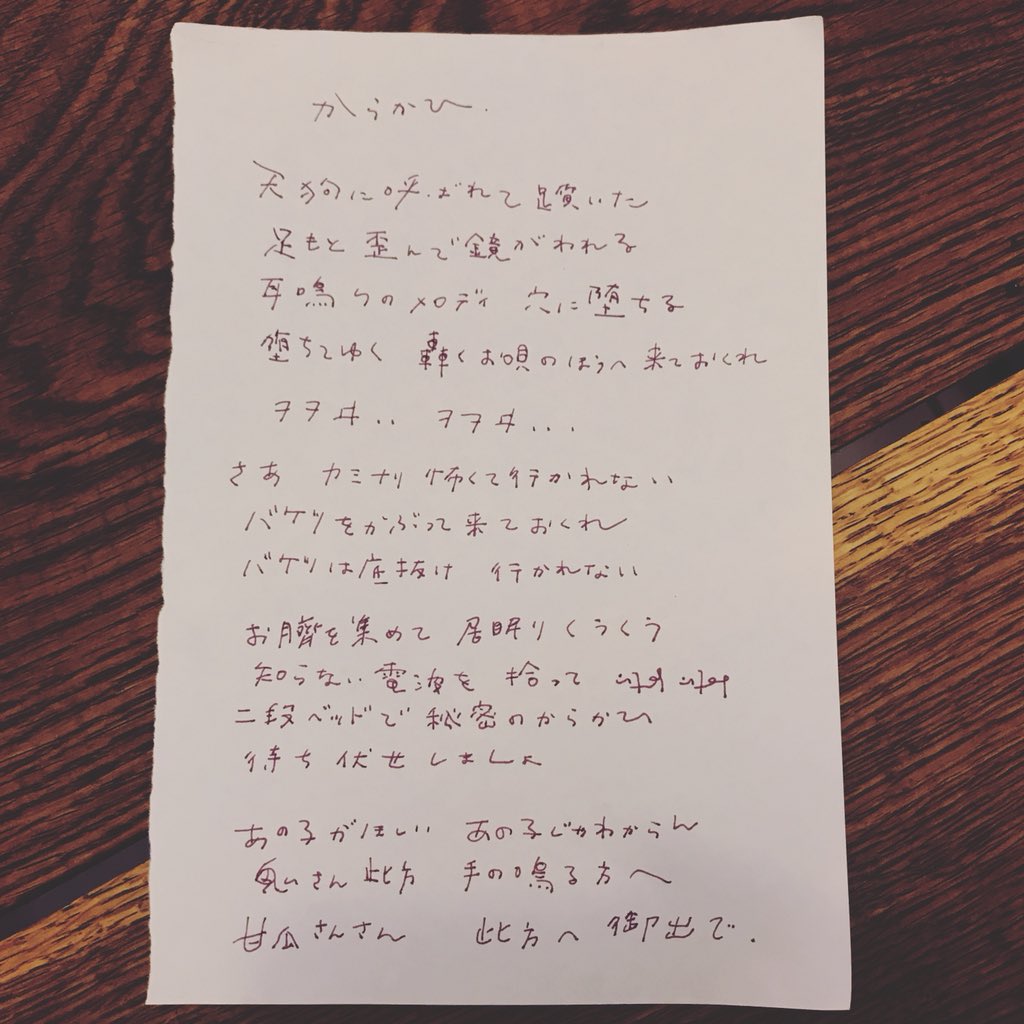 からかひ.
天狗に呼ばれて躓いた
足もと歪んで鏡がわれる
耳鳴りのメロディ 穴に堕ちる
堕ちてゆく 轟くお唄のほうへ来ておくれ
ヲヲヰ.. ヲヲヰ...
さあ カミナリ怖くて行かれない
バケツをかぶって来ておくれ
バケツは底抜け 行かれない
お臍を集めて 居眠りくうくう
知らない電波を 拾って
二段ベッドで秘密のからかひ
待ち伏せしましょ
あの子がほしい あの子じゃわからん
鬼さん此方 手の鳴る方へ
甘瓜さんさん 此方へ御出で.